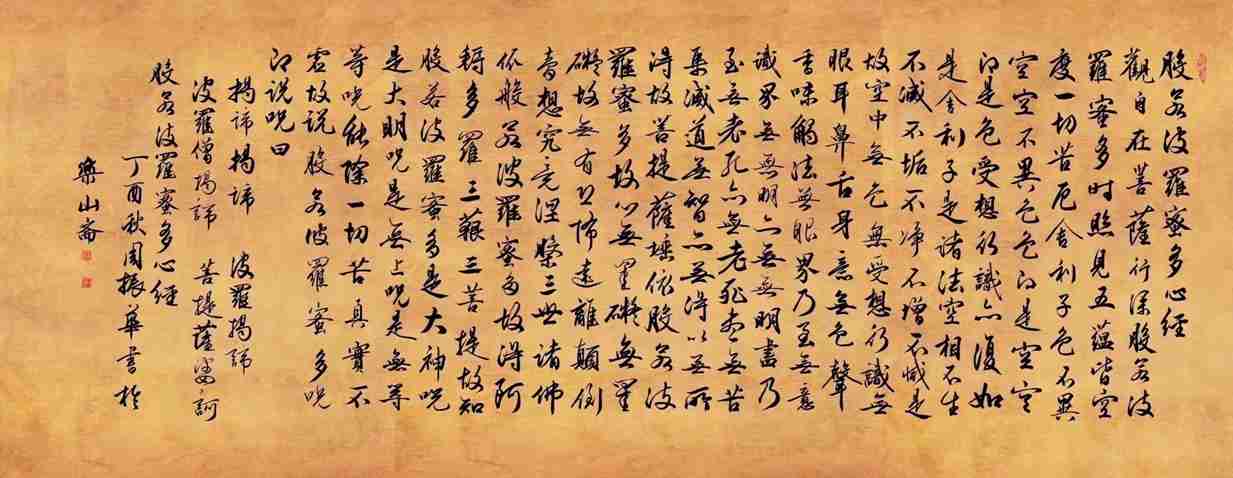 般若波羅蜜多心經
觀自在菩薩行深般若波
羅蜜多時照見五蘊皆空
度一切苦厄舍利子色不異
空空不異色色即是空空
即是色受想行識亦復如
是舍利子是諸法空相不生
不滅不垢不淨不增不減是
故空中無色無受想行識無
眼耳鼻舌身意無色聲
香味觸法無眼界乃至無意
識界無無明亦無無明盡乃
至無老死亦無老死盡無苦
集滅道無智亦無得以無所
得故菩提薩埵依般若波
羅蜜多故心無罣礙無罣
礙故無有恐怖遠離顛倒
夢想究竟涅槃三世諸佛
依般若波羅蜜多故得阿
耨多羅三藐三菩提故知
般若波羅蜜多是大神呪
是大明呪是無上呪是無等
等呪能除一切苦真實不
虛故說般若波羅蜜多呪
即說呪曰
揭諦揭諦 波羅揭諦
波羅僧揭諦 菩提薩婆訶
般若波羅蜜多心經
丁酉秋周振華書於
樂山齋